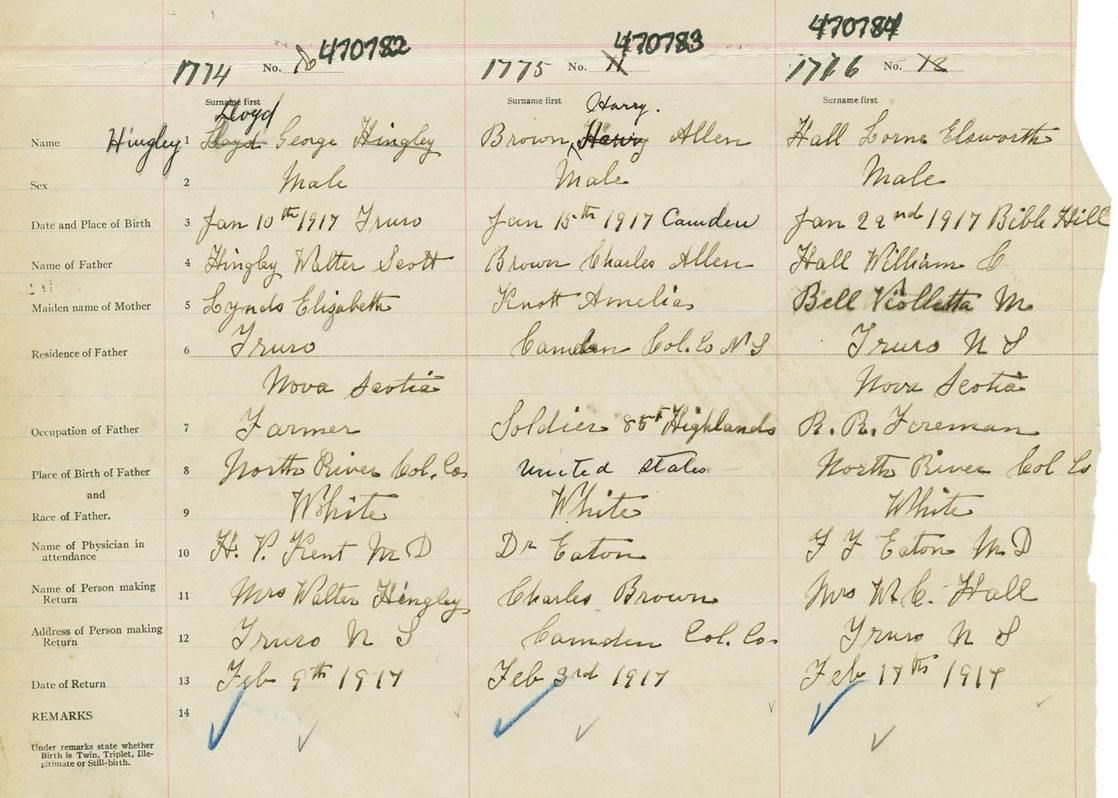 470782 470783 470784
1774 No. 1775 No. 11 1776 No. 18
Surname first Surname first Surname first
Lloyd Harry.
Name Hingley 1 Lloyd George Hingley Brown, Harry Allen Hall Lorne Elsworth
Sex 2 Male Male Male
Date and Place of Birth 3 Jan 10th 1917 Truro Jan 15th 1917 Camden Jan 22nd 1917 Bible Hill
Name of Father 4 Hingley Walter Scott Brown Charles Allen Hall William C
Maiden name of Mother 5 Lynds Elizabeth Knott Amelia Bell Violletta M
Residence of Father 6 Truro Camden Col. Co N S Truro N S
Nova Scotia Nova Scotia
Occupation of Father 7 Farmer Soldier 85th Highlands R. R. Foreman
Place of Birth of Father 8 North River Col. Co United States North River Col Co
and
Race of Father. 9 White White White
Name of Physician in
attendance 10 H. V. Kent M D Dr Eaton F F Eaton M D
Name of Person making
Return 11 Mrs Walter Hingley Charles Brown Mrs W. C. Hall
Address of Person making
Return 12 Truro N S Camden Col. Co Truro N S
Date of Return 13 Feb 9th 1917 Feb 3rd 1917 Feb 17th 1917
REMARKS 14
Under remarks state whether
Birth is Twin, Triplet, Ille-
gitimate or Still-birth.